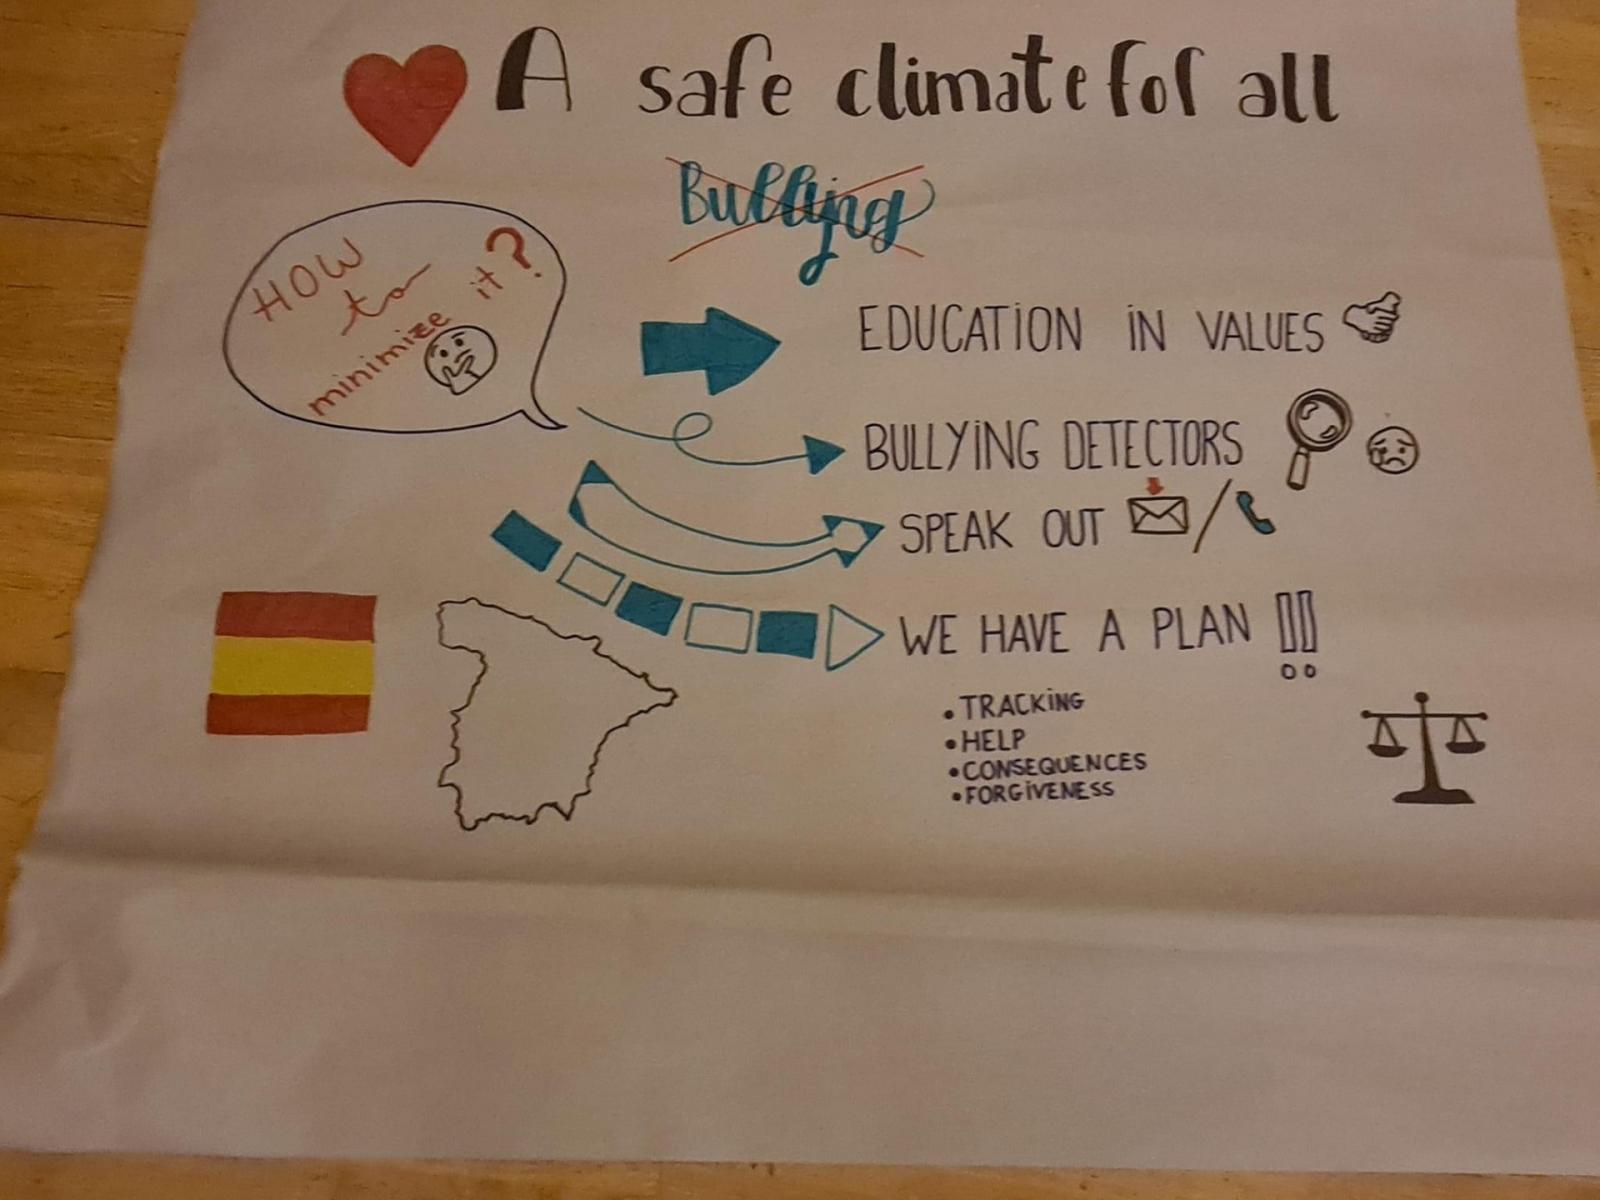 A safe climate for all
Bullying
HOW
to
minimize it?
EDUCATION IN VALUES
BULLYING DETECTORS
SPEAK OUT
WE HAVE A PLAN !!
• TRACKING
• HELP
• CONSEQUENCES
• FORGIVENESS